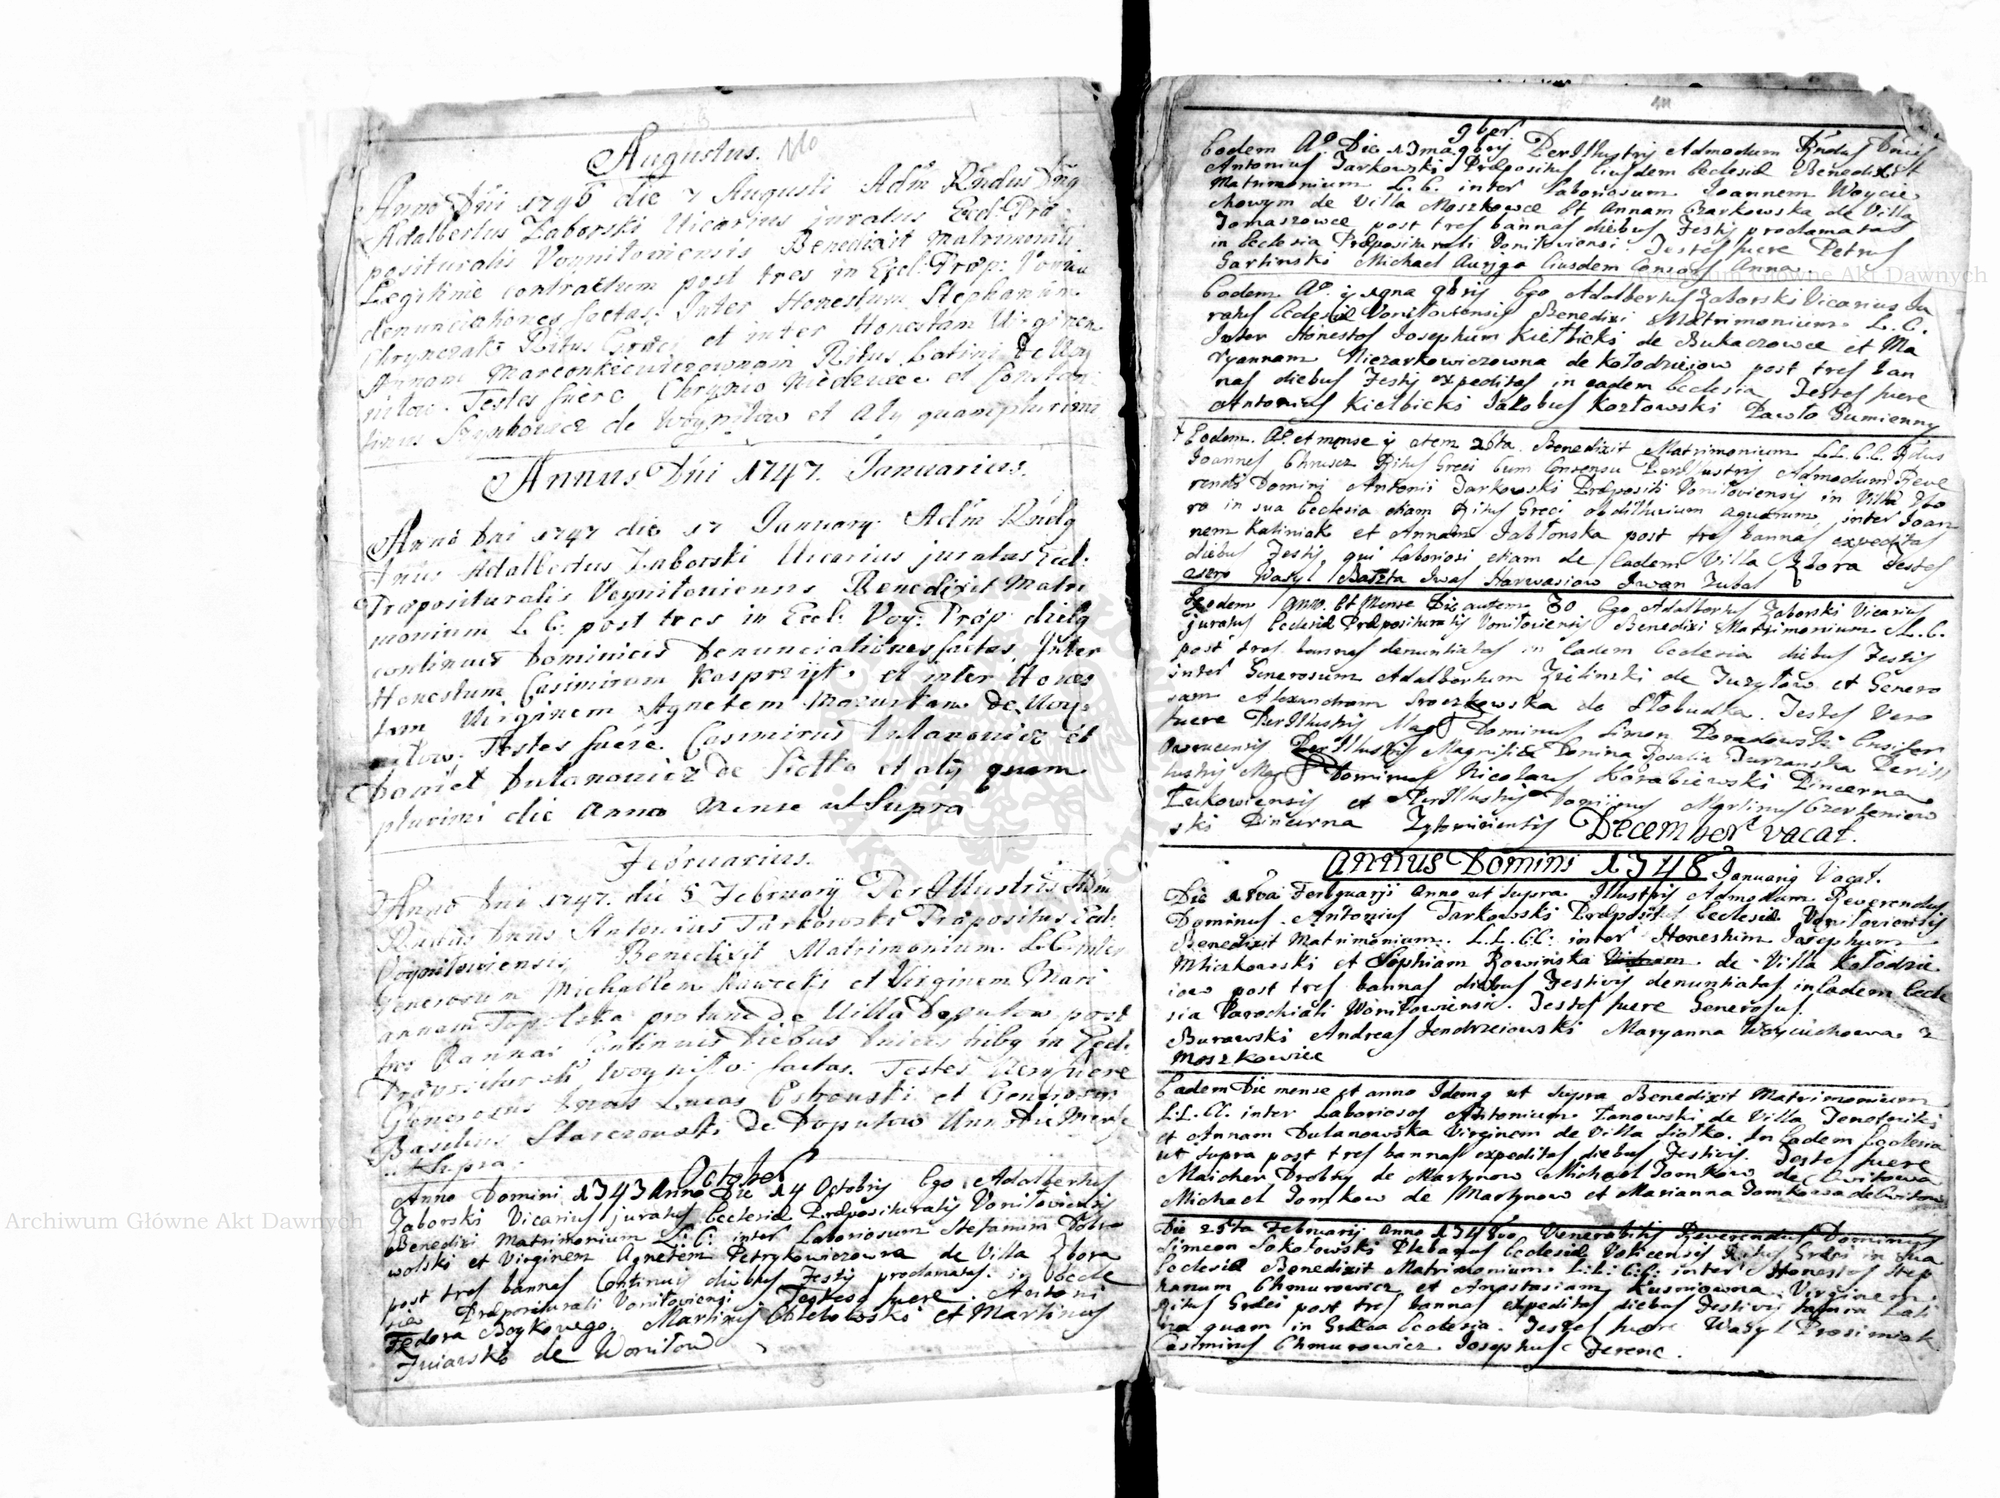 Augustus.
Anno Dni 1746 die 7 Augusti Adm Rndus Dnq
Adalbertus Zaborski Vicarius juratus Eccl: Præ
posituralis Voynilowiensis Benedixit Matrimonium
Legitime contractum post tres in Eccl: Præp:
denunciationes factas; Inter Honestum Stephanum
Ritus Græci et inter Honestam Virginem
Annam Ritus Latini de Woy
nilow. Testes fuere Chrynio et
de Woynilow et Aly quamplurimi
Annus Dni 1747. Januarius.
Anno Dni 1747 die 17 January Adm Rndq
Dnus Adalbertus Zaborski Vicarius juratus Eccl:
Præposituralis Voyniloviensis Benedixit Matri
monium L. C. post tres in Eccl: Voy: Præp: diebq
continuis Dominicis Denunciationes factas, Inter
Honestum Casimirum Kasprzyk et inter Hones
tam Virginem Agnetem de Woy
nilow. Testes fuere. Casimirus Dulanowicz et
Daniel Dulanowicz de Siolko et aly quam
plurimi die Anno Mense ut Supra
Februarius.
Anno Dni 1747. die 5 February Per Illustris Adm
Rndus Dnus Antonius Tarkowski Præpositus Eccl:
Voynilowiensis Benedixit Matrimonium L. C. inter
Generosum Michaelem Rawecki et Virginem Mari
annam Topolska pro tunc de Villa Dopulow post
tres Bannas Continuis Diebus in Eccl:
Præpositurali Woynilo: factas. Testes fuere
Generosus Dnus Lucas Ostrowski et Generosus
Basilius Starczowski de Dopulow Anno Die Mense
ut Supra.
October
Anno Domini 1747 Anno Die 14 Octobris Ego Adalbertus
Zaborski Vicarius juratus Ecclesiæ Præposituralis Voniloviensis
Benedixi Matrimonium L: C: inter Laboriosum Stefanum Dobro
wolski et Virginem Agnetem Petrykowiczowna de Villa Zbora
post tres bannas Continuis diebus Festis proclamatas in Eccle
sia Præpositurali Voniloviensi. Testes fuere Antoni
Fedora Boykowego Martinus Chlebowski et Martinus
de Wonilow
9ber.
Eodem A° Die 13ma 9bris Perillustris Admodum Rndus Dnus
Antonius Tarkowski Præpositus Eiusdem Ecclesiæ Benedixit
Matrimonium L. C. inter Laboriosum Joannem Woycie
chowym de Villa Moszkowce Et Annam Czarkowska de Villa
Tomaszowce post tres bannas diebus Festis proclamatas
in Ecclesia Præpositurali Voniloviensi Testes fuere Petrus
Garlinski Michael Auriga Eiusdem Consors Anna
Eodem A°. 9bris Ego Adalbertus Zaborski Vicarius Ju
ratus Ecclesiæ Voniloviensis Benedixi Matrimonium L. C.
Inter Honestos Josephum Kielbicki de Bukaczowce et Ma
ryannam Niezarkowiczowna de Kołodzieiow post tres ban
nas diebus Festis expeditas in eadem Ecclesia Testes fuere
Antonius Kielbicki Jakobus Kozłowski Pawło Gumienny
Eodem A° et mense 26ta Benedixit Matrimonium LL.C.C. Rdus
Joannes Chrusez Ritus Greci Cum Consensu Perillustris Admodum Reve
rendi Domini Antonii Tarkowski Præpositi Voniloviensis in Villa Zbo
ra in sua Ecclesia etiam Ritus Greci inter Joan
nem Kaliniak et Annam Jabłonska post tres bannas expeditas
diebus Festis qui laboriosi etiam de Eadem Villa Zbora Testes
Wasyl Baszta Iwas Harwasiow Iwan Zubal
Eodem Anno Et Mense Die autem 30 Ego Adalbertus Zaborski Vicarius
juratus Ecclesiæ Præposituralis Voniloviensis Benedixi Matrimonium L. C.
post tres bannas denuntiatas in Eadem Ecclesia diebus Festis
inter Generosum Adalbertum Zielinski de Turzylow et Genero
sam Alexandram Sroczkowska de Slobudka. Testes Vero
fuere Perillustris Mag Dominus Simon Doradowski Ensifer
Per Illustris Magnifica Domina Rosalia Turzanska Perill
lustris Mag Dominus Nicolaus Korabiewski Pincerna
Lukowiensis et Perillustris Dominus Martinus Czerleniow
ski Pincerna Zytomiriensis December vacat.
Annus Domini 1748 January Vacat.
Die 18va Februarij Anno ut supra Illustris Admodum Reverendus
Dominus Antonius Tarkowski Præpositus Ecclesiæ Voniloviensis
Benedixit Matrimonium L.L. C.C: inter Honestum Josephum
Mhizkowski et Sophiam Rowinska de Villa Kołodzie
iow post tres bannas diebus Festivis denuntiatas in Eadem Eccle
sia Parochiali Woniłowiensi. Testes fuere Generosus
Burawski Andreas Jendrzeiowski Maryanna Woyciechowa z
Moszkowiec
Eadem Die mense et anno Idemq ut supra Benedixit Matrimonium
L.L. CC. inter Laboriosos Antonium Janowski de Villa
et Annam Dulanowska Virginem de Villa Siołko. In Eadem Ecclesia
ut supra post tres bannas expeditas diebus Festivis. Testes fuere
Maicher Drobny de Martynow Michael Tomkow de Cwitowa
Michael Tomkow de Martynow et Marianna Tomkowa de Cwitowa
Die 25ta Februarij Anno 1748vo Venerabilis Reverendus Dominus
Simeon Sokołowski Plebanus Ecclesiæ Ritus Græci in sua
Ecclesia Benedixit Matrimonium L.L. C.C: inter Honestos Step
hanum Chmurowicz et Anastasiam Kusniowna Virginem
Ritus Græci post tres bannas expeditas diebus Festivis tam in Lati
na quam in Græca Ecclesia. Testes fuere Wasyl Prosimiak
Casimirus Chmurowicz Josephus Ferenc.
Archiwum Główne Akt Dawnych
Archiwum Główne Akt Dawnych